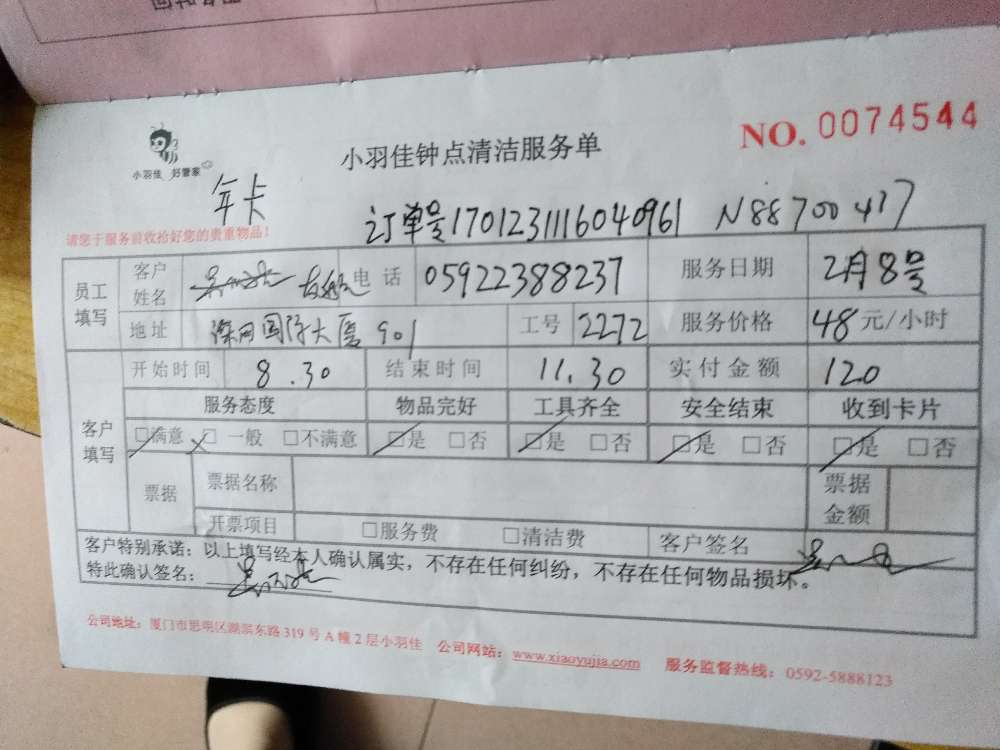 NO. 0074544
小羽佳 好管家
小羽佳钟点清洁服务单
年卡
订单号1701231116040961 N88700417
请您于服务前收拾好您的贵重物品!
员工填写 客户姓名 电话 059222388237 服务日期 2月8号
地址 深田国际大厦901 工号 2272 服务价格 48元/小时
客户填写 开始时间 8.30 结束时间 11.30 实付金额 120
服务态度 物品完好 工具齐全 安全结束 收到卡片
□满意 □一般 □不满意 □是 □否 □是 □否 □是 □否 □是 □否
票据 票据名称 票据金额
开票项目 □服务费 □清洁费 客户签名
客户特别承诺:以上填写经本人确认属实,不存在任何纠纷,不存在任何物品损坏。
特此确认签名:
公司地址:厦门市思明区湖滨东路319号A幢2层小羽佳 公司网站:www.xiaoyujia.com 服务监督热线:0592-5888123